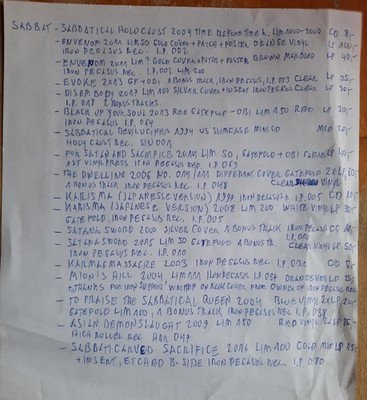 SABBAT - SABBATICAL HOLOCAUST 2004 TIME BEFORE TIME R. LIM 1000 CD 8,-
- ENVENOM 2011 LIM 50 GOLD COVER + PATCH + POSTER ORANGE VINYL LP 100,-
IRON PEGASUS REC. I.P. 002
- ENVENOM 2011 LIM GOLD COVER + PATCH + POSTER BROWN MARBLED LP 40,-
IRON PEGASUS REC. I.P. 002 LIM 200
- EVOKE 2013 GF + OBI 1 BONUS TRACK, IRON PEGASUS, I.P. 003 CLEAR LP 35,-
- DISEMBODY 2017 LIM 100 SILVER COVER + INSERT IRON PEGASUS CLEAR LP 30,-
I.P. 018 2 BONUS TRACKS.
- BLACK UP YOUR SOUL 2013 RED GATEFOLD - OBI LIM 150 RED LP 30,-
IRON PEGASUS I.P. 064
- SABBATICAL DEVILUCIFER 1994 US SLIMCASE MINI CD MCD 20,-
HOLYCAUST REC. SIN 001
- FOR SATAN AND SACRIFICE 2011 LIM 50, GATEFOLD + OBI CLEAR LP 40,-
1ST VINYL PRESS IRON PEGASUS REC. I.P. 063
- THE DWELLING 2006 NO. 011/111 DIFFERENT COVER GATEFOLD 2XLP 60,-
1 BONUS TRACK IRON PEGASUS REC. I.P. 048 CLEAR VINYL
- KARISMA (JAPANESE VERSION) 1999 IRON PEGASUS R. I.P. 005 CD
- KARISMA (JAPANESE VERSION) 2008 LIM 200 WHITE VINYL LP 30,-
GATEFOLD, IRON PEGASUS REC. I.P. 005
- SATANASWORD 2000 SILVER COVER 1 BONUS TRACK IRON PEGASUS CD
- SATANASWORD 2015 LIM 50 GATEFOLD 2 BONUS TR. CLEAR VINYL LP 50,-
IRON PEGASUS REC. I.P. 010
- KARMAGMASSACRE 2003 IRON PEGASUS REC. I.P. 031 CD
- MION'S HILL 2004 LIM IRON PEGASUS I.P. 037 ORANGE VINYL
+ THANKS FOR IRON SUPPORT WRITTEN ON BACK COVER FROM OWNER OF IRON PEGASUS REC.
- TO PRAISE THE SABBATICAL QUEEN 2004 BLUE VINYL 2XLP 20,-
GATEFOLD LIM 400, 1 BONUS TRACK IRON PEGASUS REC. I.P. 038
- ASIAN DEMONSLAUGHT 2009 LIM 150 RED VINYL 2XLP 25,-
HIGH ROLLER REC. HRR 047
- SABBATICARVED SACRIFICE 2016 LIM 100 GOLD MINI LP 15,-
+ INSERT, ETCHED B-SIDE IRON PEGASUS REC. I.P. 070